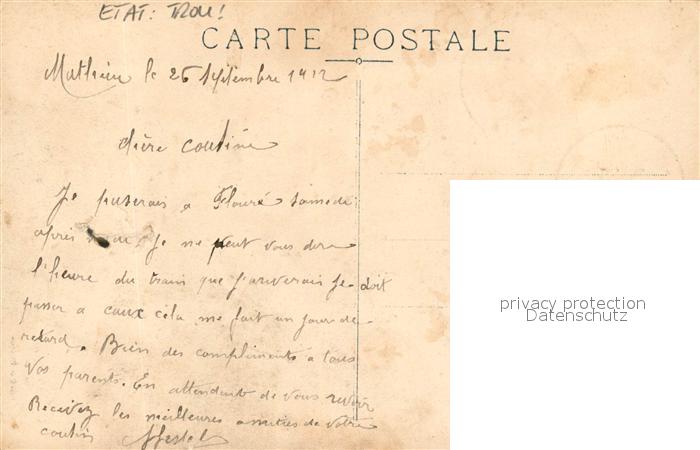 ETAT: TROU!
CARTE POSTALE
Mathieu le 26 Septembre 1912
chère cousine
Je passerais a Flouré samedi
après Je ne peut vous dire
l'heure du train que j'arriverais Je doit
passer a caux cela me fait un jour de
retard. Bien des compliments a tous
vos parents. En attendant de vous revoir
Recevez les meilleures amitiés de votre
cousin
privacy protection
Datenschutz